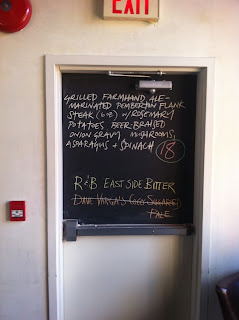 EXIT
GRILLED FARMHAND ALE-
MARINATED PEMBERTON FLANK
STEAK (6oz) W/ ROSEMARY
POTATOES BEER-BRAISED
ONION GRAVY MUSHROOMS,
ASPARAGUS + SPINACH 18
R&B EAST SIDE BITTER
DAVE VARGA'S COCO SQUARE
PALE